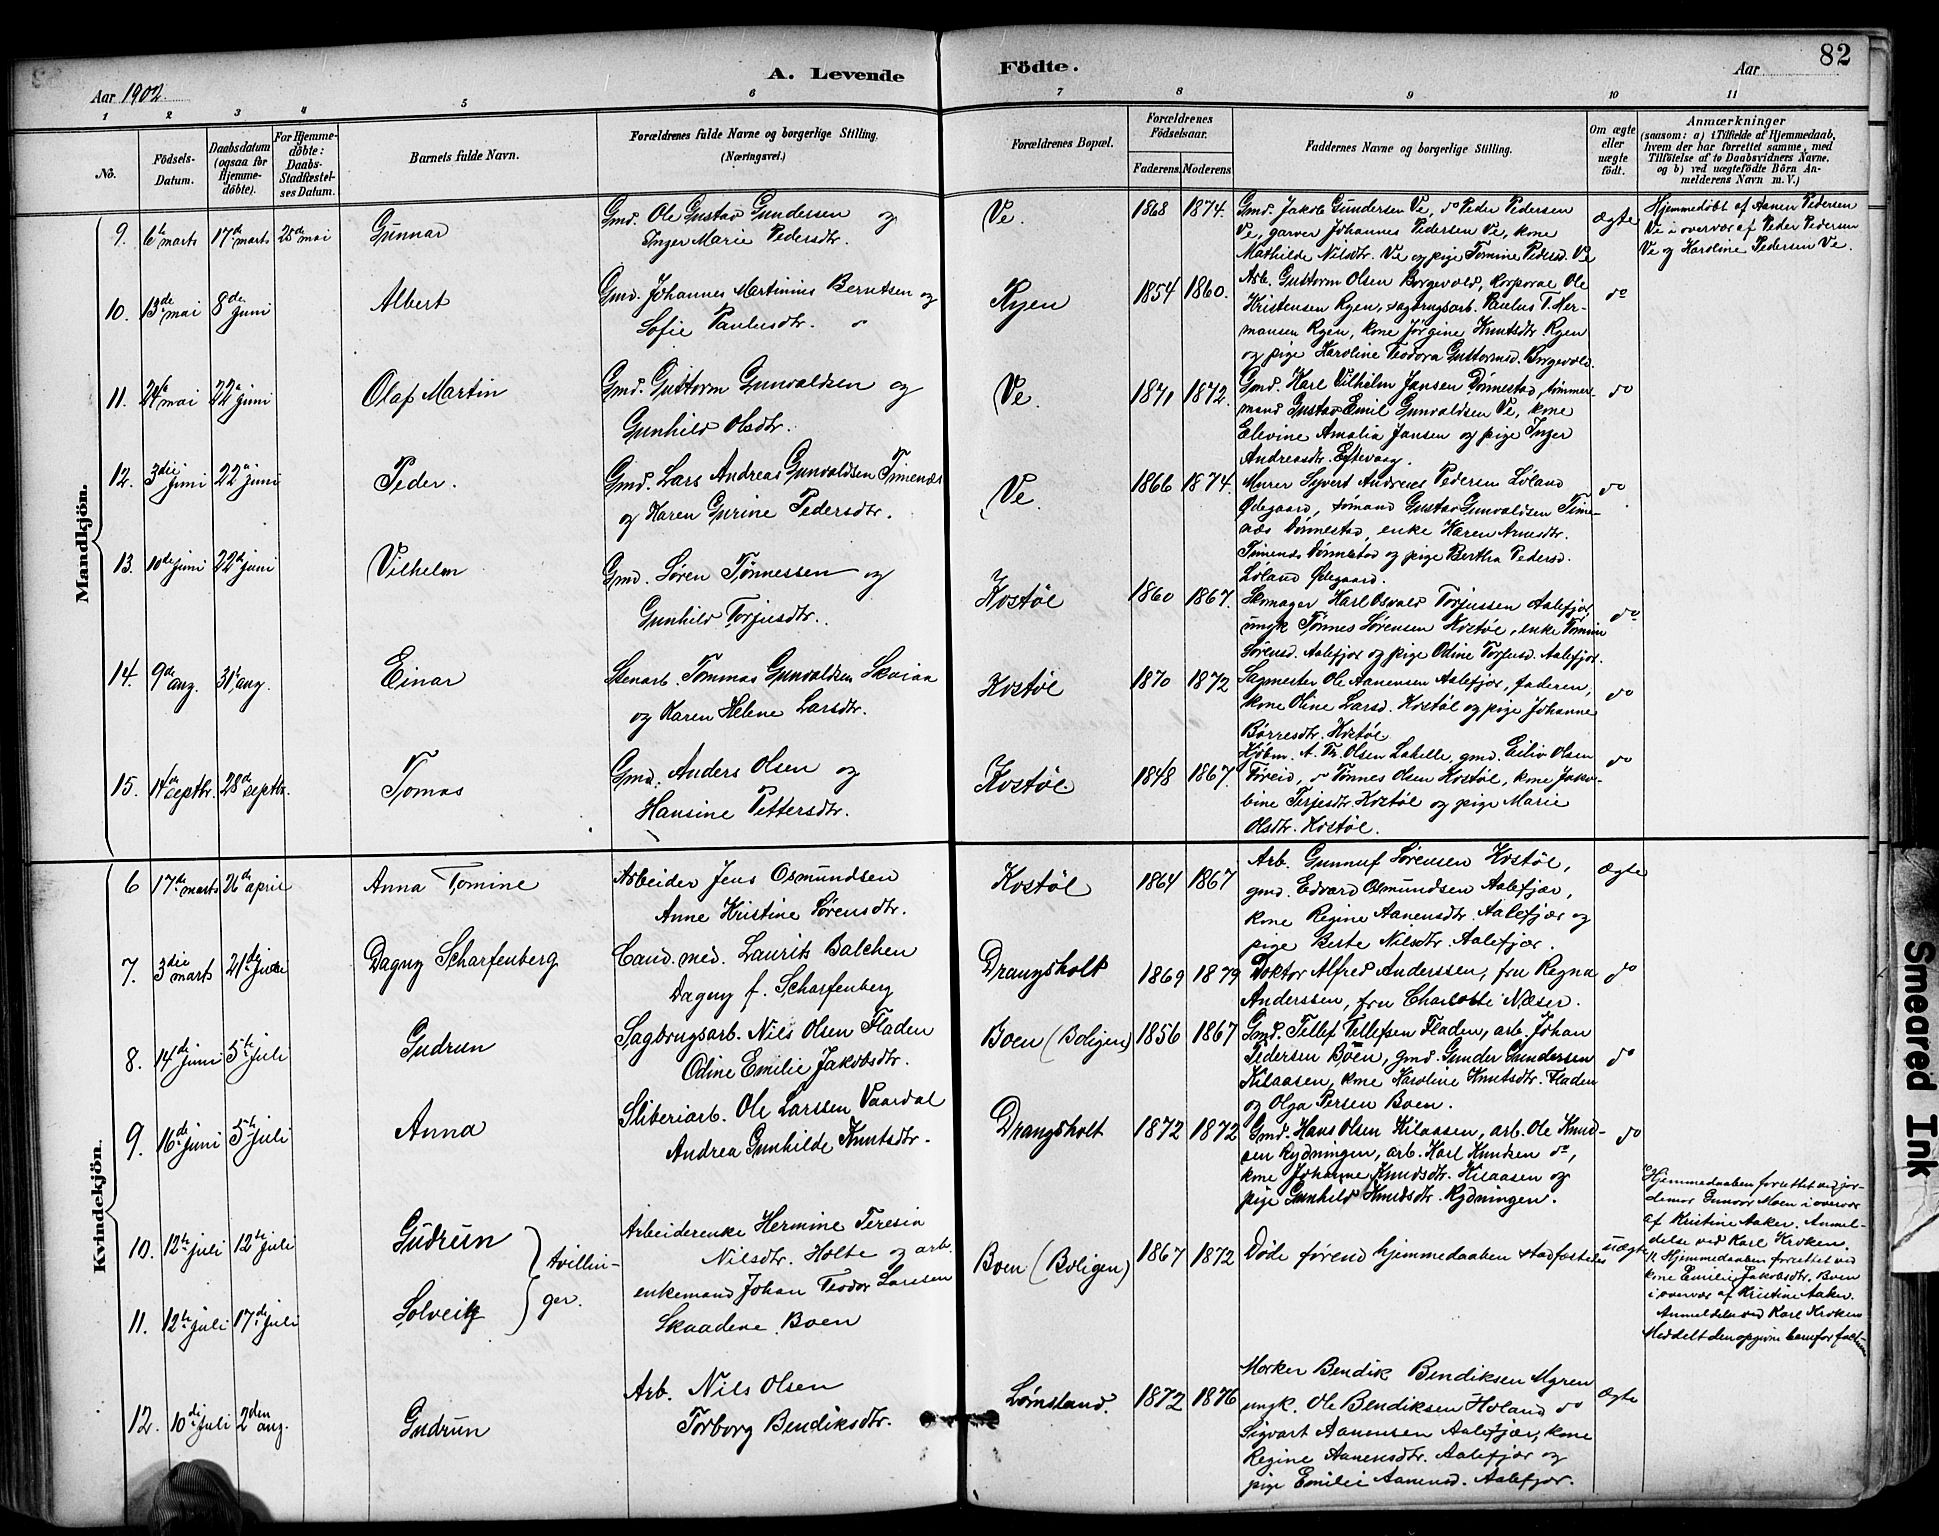 82
A. Levende Födte.
Aar 1902. Aar
1 2 3 4 5 6 7 8 9 10 11
No.
Födsels-Datum.
Daabsdatum (ogsaa for Hjemmedöbte).
For Hjemmedöbte: Daabs-Stadfæstelses Datum.
Barnets fulde Navn.
Forældrenes fulde Navne og borgerlige Stilling. (Næringsvei.)
Forældrenes Bopæl.
Forældrenes Födselsaar.
Faderens. Moderens.
Faddernes Navne og borgerlige Stilling.
Om ægte eller uægte födt.
Anmærkninger
(saasom: a) i Tilfælde af Hjemmedaab,
hvem der har forrettet samme, med
Tilföielse af to Daabsvidners Navne.
og b) ved uægtefödte Börn Anmelderens Navn m. V.)
Mandkjön.
9. 6te marts 17de marts 25de mai Gunnar
Gmd. Ole Gustav Gundersen og
Inger Marie Pedersdtr.
Ve. 1868 1874.
Gmd. Jakob Gundersen Ve, do Peder Pedersen
Ve, garver Johannes Pedersen Ve, kone
Mathilde Nilsdtr. Ve og pige Tomine Pedersd. Ve
ægte
Hjemmedöbt af Aanen Pedersen
Ve i overvær af Peder Pedersen
Ve og Karoline Pedersen Ve.
10. 13de mai 8de juni Albert
Gmd. Johannes Martinius Berntsen og
Sofie Paulusdtr.
Ryen 1854 1860.
Arb. Guttorm Olsen Borgevold, korporal Ole
Kristensen Ryen, sagbrugsarb. Paulus T. Hermansen
Ryen, kone Jørgine Knutsdtr. Ryen
og pige Karoline Teodora Guttormsd. Borgevold.
do
11. 24de mai 22de juni Olaf Martin
Gmd. Guttorm Gunvaldsen og
Gunhild Olsdtr.
Ve. 1871 1872.
Gmd. Karl Vilhelm Jansen Dønnestad, tømmermand
Gustav Emil Gunvaldsen Ve, kone
Elevine Amalia Jansen og pige Inger
Andreasdtr. Eftevaag.
do
12. 3die juni 22de juni Peder.
Gmd. Lars Andreas Gunvaldsen Timenæs
og Karen Gurine Pedersdtr.
Ve 1866 1874.
Murer Syvert Andreas Pedersen Løland
Ødegaard, sømand Gustav Gunvaldsen Timenæs
Dønnestad, enke Karen Arnesdtr.
Timenæs Dønnestad og pige Bertha Pedersd.
Løland Ødegaard.
do
13. 10de juni 22de juni Vilhelm
Gmd. Søren Tønnessen og
Gunhild Torjusdtr.
Kostøl 1860 1867.
Skomager Karl Osvald Torjussen Aalefjær,
ungk Tønnes Sørensen Kostøl, enke Tomine
Sørensd. Aalefjær og pige Odine Torjusd. Aalefjær.
do
14. 9de aug. 31te aug. Einar
Stenarb. Tommas Gunvaldsen Skaiaa
og Karen Helene Larsdtr.
Kostøl 1870 1872
Sagmester Ole Aanensen Aalefjær, faderen,
kone Oline Larsd. Kostøl og pige Johanne
Børresdtr. Kostøl
do
15. 14de septbr. 28de septbr. Tomas
Gmd. Anders Olsen og
Hansine Pettersdtr.
Kostøl. 1848 1867.
Kjøbm. A. Th. Olsen Labelle, gmd. Eiliv Olsen
Føreid, do Tønnes Olsen Kostøl, kone Jakobine
Terjesdtr. Kostøl og pige Marie
Olsdtr. Kostøl.
do
Kvindekjön.
6 17de marts 26de april Anna Tomine
Arbeider Jens Osmundsen
Anne Kristine Sørensdtr.
Kostøl 1864 1867
Arb. Gunnuf Sørensen Kostøl,
gmd. Edvard Osmundsen Aalefjær,
kone Regine Aanensdtr. Aalefjær og
pige Berte Nilsdtr. Aalefjær.
ægte
7. 3die marts 21de Dagny Scharfenberg
Cand. med. Laurits Balchen
Dagny f. Scharfenberg
Drangsholt 1869 1879
Doktor Alfred Anderssen, fru Regna
Anderssen, fru Charlotte Næser.
do
8. 14de juni 5te juli Gudrun
Sagbrugsarb. Nils Olsen Fladen
Odine Emilie Jakobsdtr.
Boen (Boligen) 1856 1867
Gmd. Tellef Tellefsen Fladen, arb. Johan
Pedersen Boen, gmd. Gunder Gundersen
Kilaasen, kone Karoline Knutsdtr. Fladen
og Olga Persen Boen.
do
9. 16de juni 5te juli Anna
Sliberiarb. Ole Larssen Vaardal
Andrea Gunhilde Knutsdtr.
Drangsholt 1872 1872
Gmd. Hans Olsen Kilaasen, arb. Ole Knudsen
Rydningen, arb. Karl Knudsen do,
kone Johanne Knudsdtr. Kilaasen og
pige Gunhild Knudsdtr. Rydningen.
do
10. 12te juli 12te juli Gudrun
11. 12te juli 17de juli Solveig
tvillinger.
Arbeiderenke Hermine Teresia
Nilsdtr. Holte og arb.
enkemand Johan Teodor Larssen
Skaadene, Boen
Boen (Boligen) 1867 1872
Døde førend hjemmedaaben stadfæstedes
uægte
10 Hjemmedaaben forrettet ved jordemor
Gunvor Moen i overvær
af Kristine Aaker. Anmeldelse
ved Karl Kroken.
11. Hjemmedaaben forrettet ved
kone Emilie Jakobsdtr. Boen
i overvær af Kristine Aaker.
Anmeldelse ved Karl Kroken
Meddelt den opgivne barnefar
12. 10de juli 2den aug. Gudrun
Arb. Nils Olsen
Torborg Bendiksdtr.
Lømsland. 1872 1876
Bendik Bendiksen Myren
ungk. Ole Bendiksen Holand do
Sigvart Aanensen Aalefjær, kone
Regine Aanensdtr. Aalefjær og
pige Emilie Aanensd. Aalefjær.
ægte
Smeared Ink